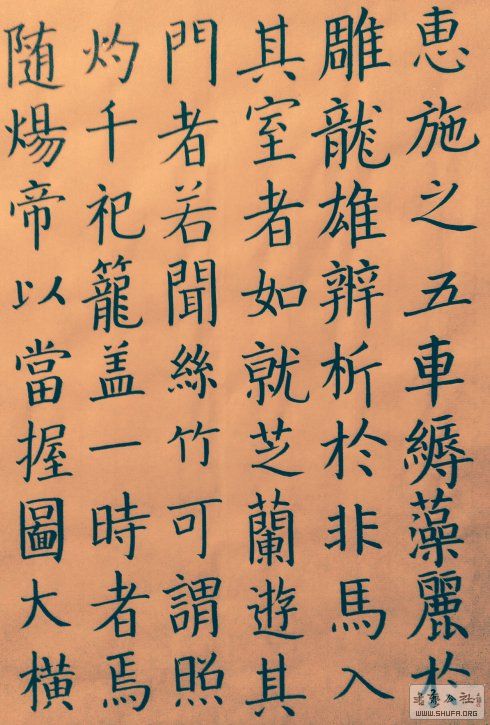 恵施之五車縟藻麗於
雕龍雄辨析於非馬入
其室者如就芝蘭遊其
門者若聞絲竹可謂照
灼千祀籠盖一時者焉
随煬帝以當握圖大横
WWW.SHUFA.ORG